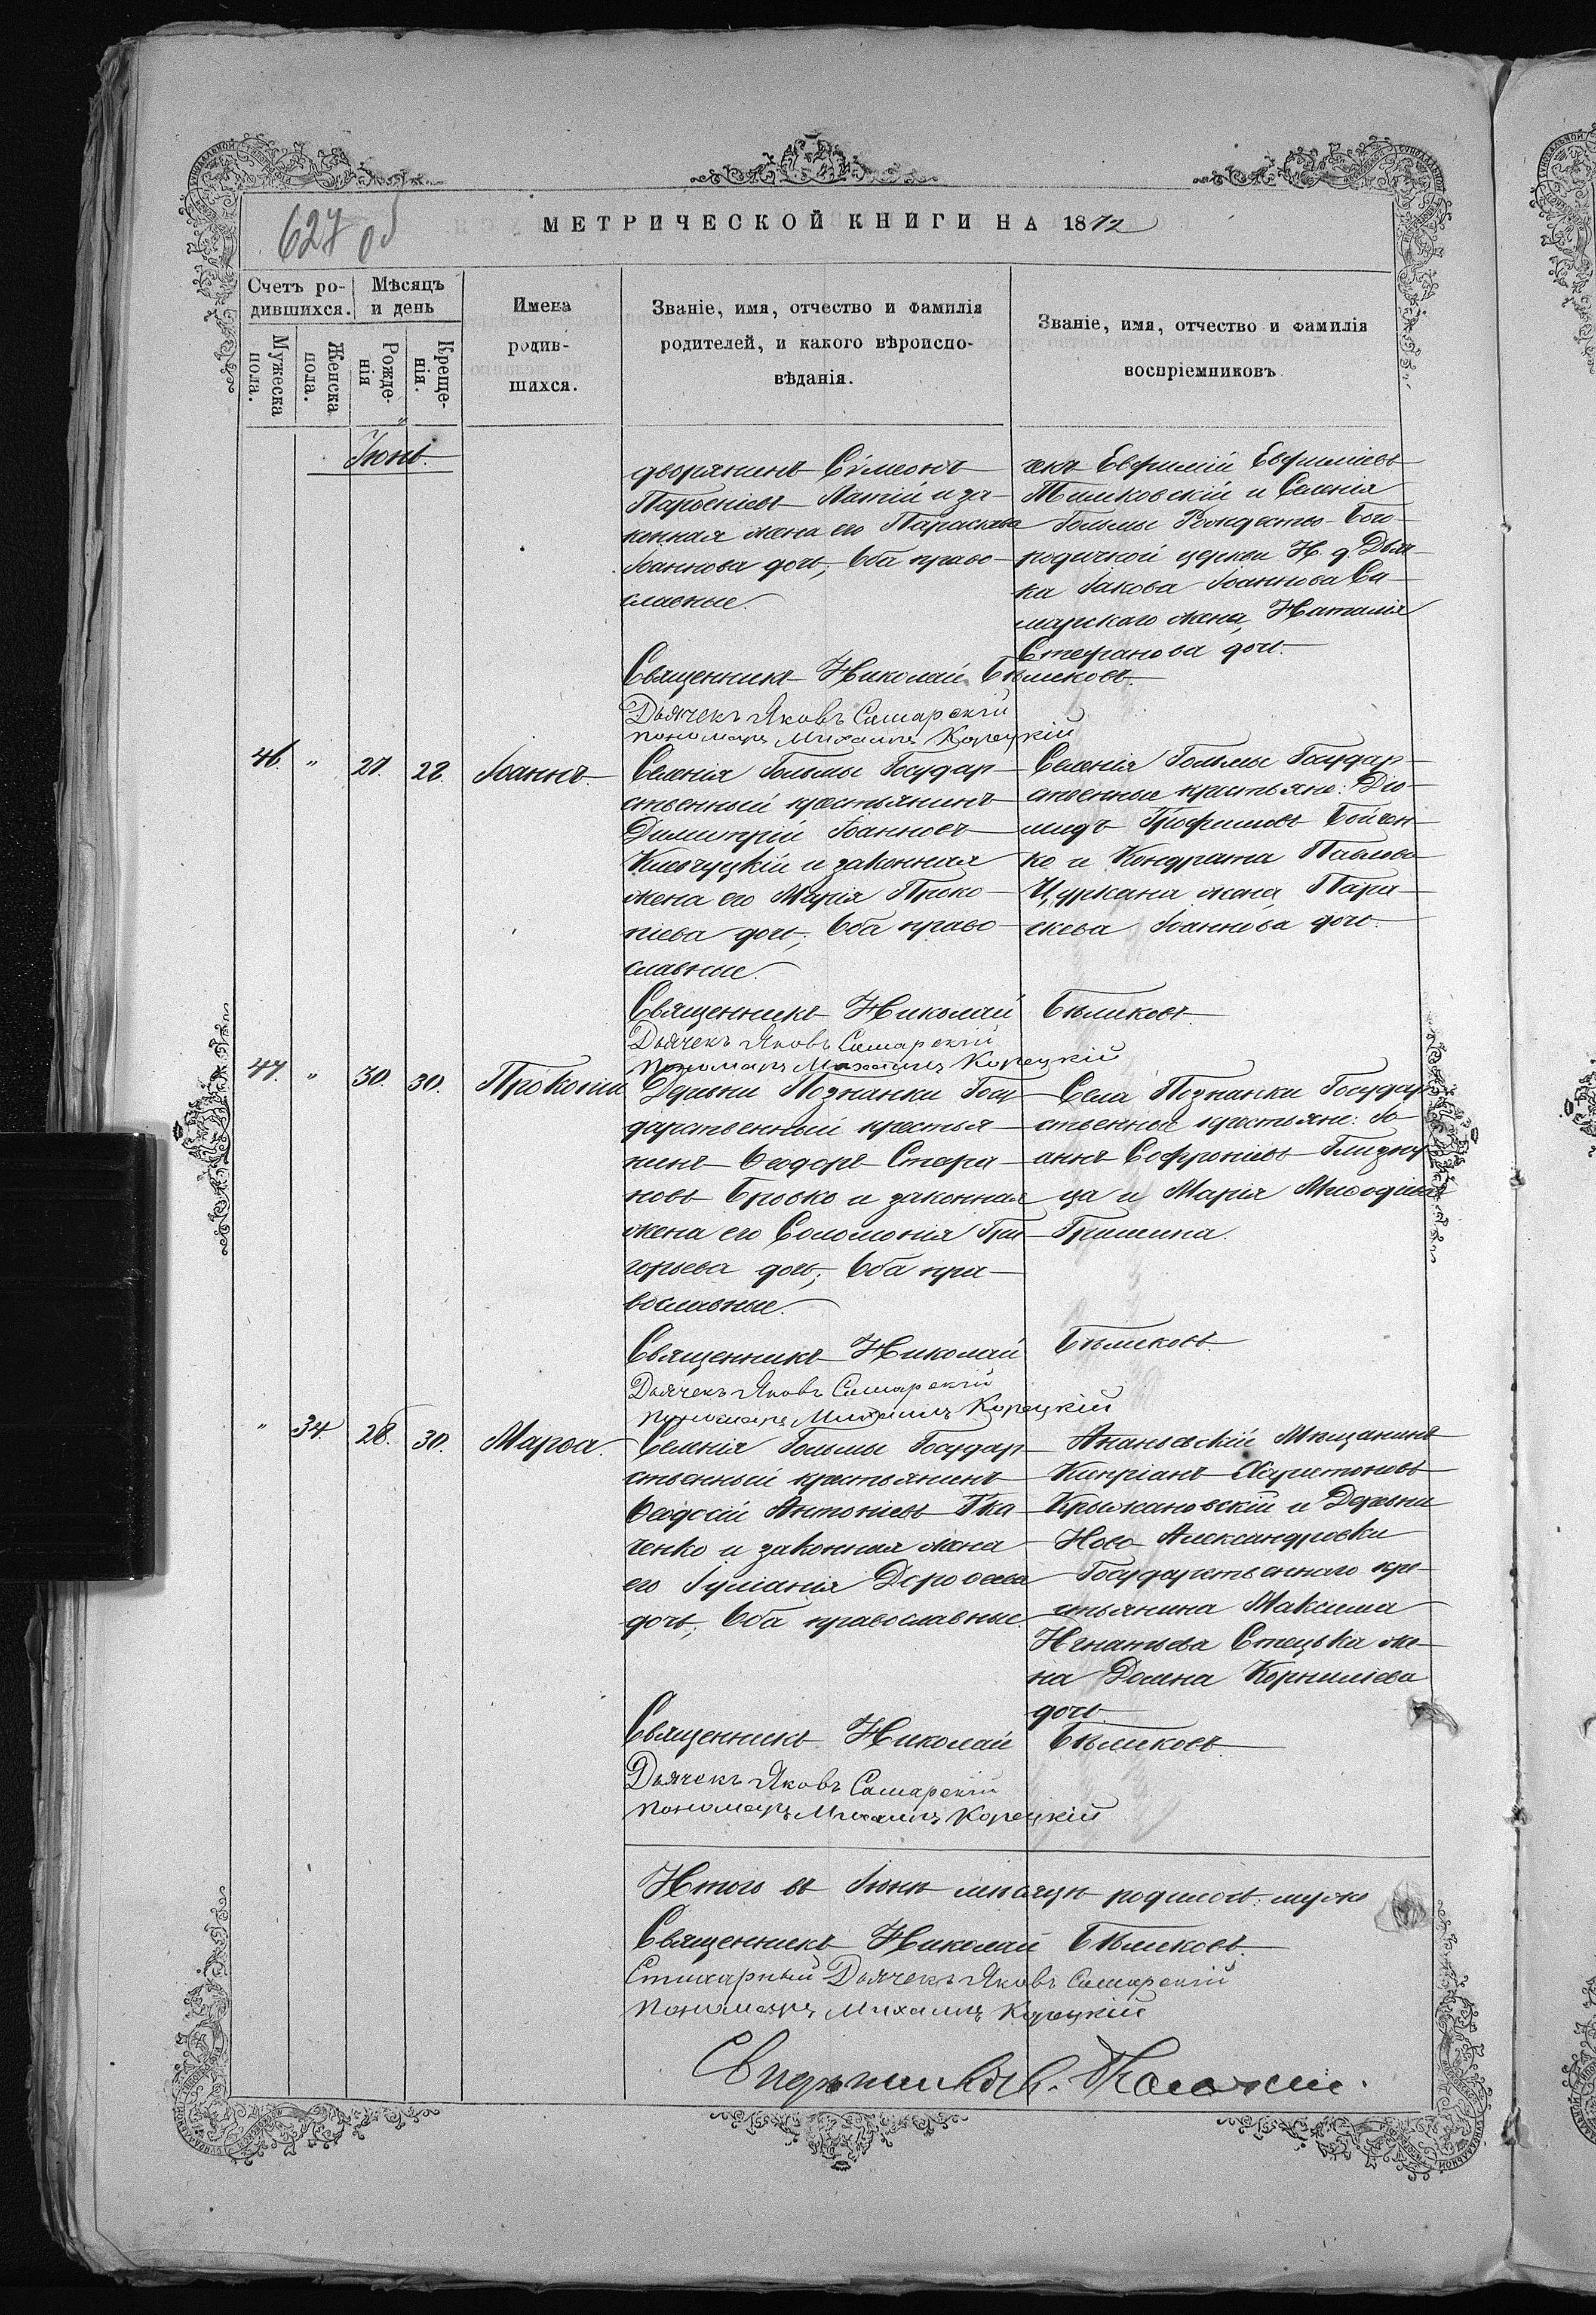 627 об
МЕТРИЧЕСКОЙ КНИГИ НА 1872
Счетъ ро-
дившихся.
Мѣсяцъ
и день
Мужеска
пола.
Женска
пола.
Рожде-
нія
Креще-
нія.
Имена
родив-
шихся.
Званіе, имя, отчество и фамилія
родителей, и какого вѣроиспо-
вѣданія.
Званіе, имя, отчество и фамилія
воспріемниковъ.
Іюнь.
дворянинъ Сѵмеонъ
Парѳеніевъ Латій и за-
конная жена его Параскева
Іоаннова дочь; Оба право-
славные.
чекъ Евфимій Евфиміевъ
Тимковскій и Селенія
Гольмы Рождество-Бого-
родичной церкви И. д. Дьяч-
ка Іакова Іоаннова Са-
марскаго жена, Наталія
Стефанова дочь.
Священникъ Николай Бѣликовъ.
Дьячекъ Яковъ Самарскій
пономарь Михаилъ Корецкій
46. " 27. 28. Іоаннъ.
Селенія Гольмы Государ-
ственный крестьянинъ
Димитрій Іоанновъ
и законная
жена его Марія Проко-
піева дочь; Оба право-
славные.
Селенія Гольмы Государ-
ственные крестьяне: Дио-
мидъ Трофимовъ Бойчен-
ко и Кондрата Павлова
Цуркана жена, Пара-
скева Іоаннова дочь.
Священникъ Николай Бѣликовъ.
Дьячекъ Яковъ Самарскій
пономарь Михаилъ Корецкій
47. " 30. 30. Прокопій
Деревни Познанки Госу-
дарственный крестья-
нинъ Ѳеодоръ Стефа-
новъ Бровко и законная
жена его Соломонія Гри-
горьева дочь; Оба пра-
вославные.
Села Познанки Государ-
ственные крестьяне: Іо-
аннъ Софроніевъ Близню-
ца и Марія Меѳодіева
Гришина.
Священникъ Николай Бѣликовъ.
Дьячекъ Яковъ Самарскій
пономарь Михаилъ Корецкій
" 34. 28. 30. Марѳа.
Селенія Гольмы Государ-
ственный крестьянинъ
Ѳеодосій Антоніевъ Тка-
ченко и законная жена
его Іуліанія Дороѳеева
дочь; Оба православные.
Ананьевскій Мѣщанинъ
Кипріанъ Харитоновъ
Крыжановскій и Деревни
Ново-Александровки
Государственнаго кре-
стьянина Максима
Игнатьева Стецька же-
на Домна Корниліева
дочь
Священникъ Николай Бѣликовъ.
Дьячекъ Яковъ Самарскій
пономарь Михаилъ Корецкій
Итого въ Іюнѣ мѣсяцѣ родилось: муже
Священникъ Николай Бѣликовъ.
Стихарный Дьячекъ Яковъ Самарскій
пономарь Михаилъ Корецкій